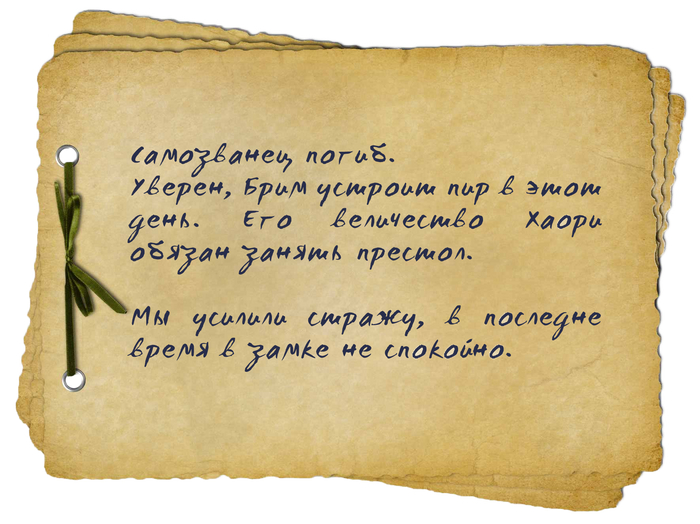 Самозванец погиб.
Уверен, Брим устроит пир в этот
день. Его величество Хаори
обязан занять престол.
Мы усилили стражу, в последне
время в замке не спокойно.